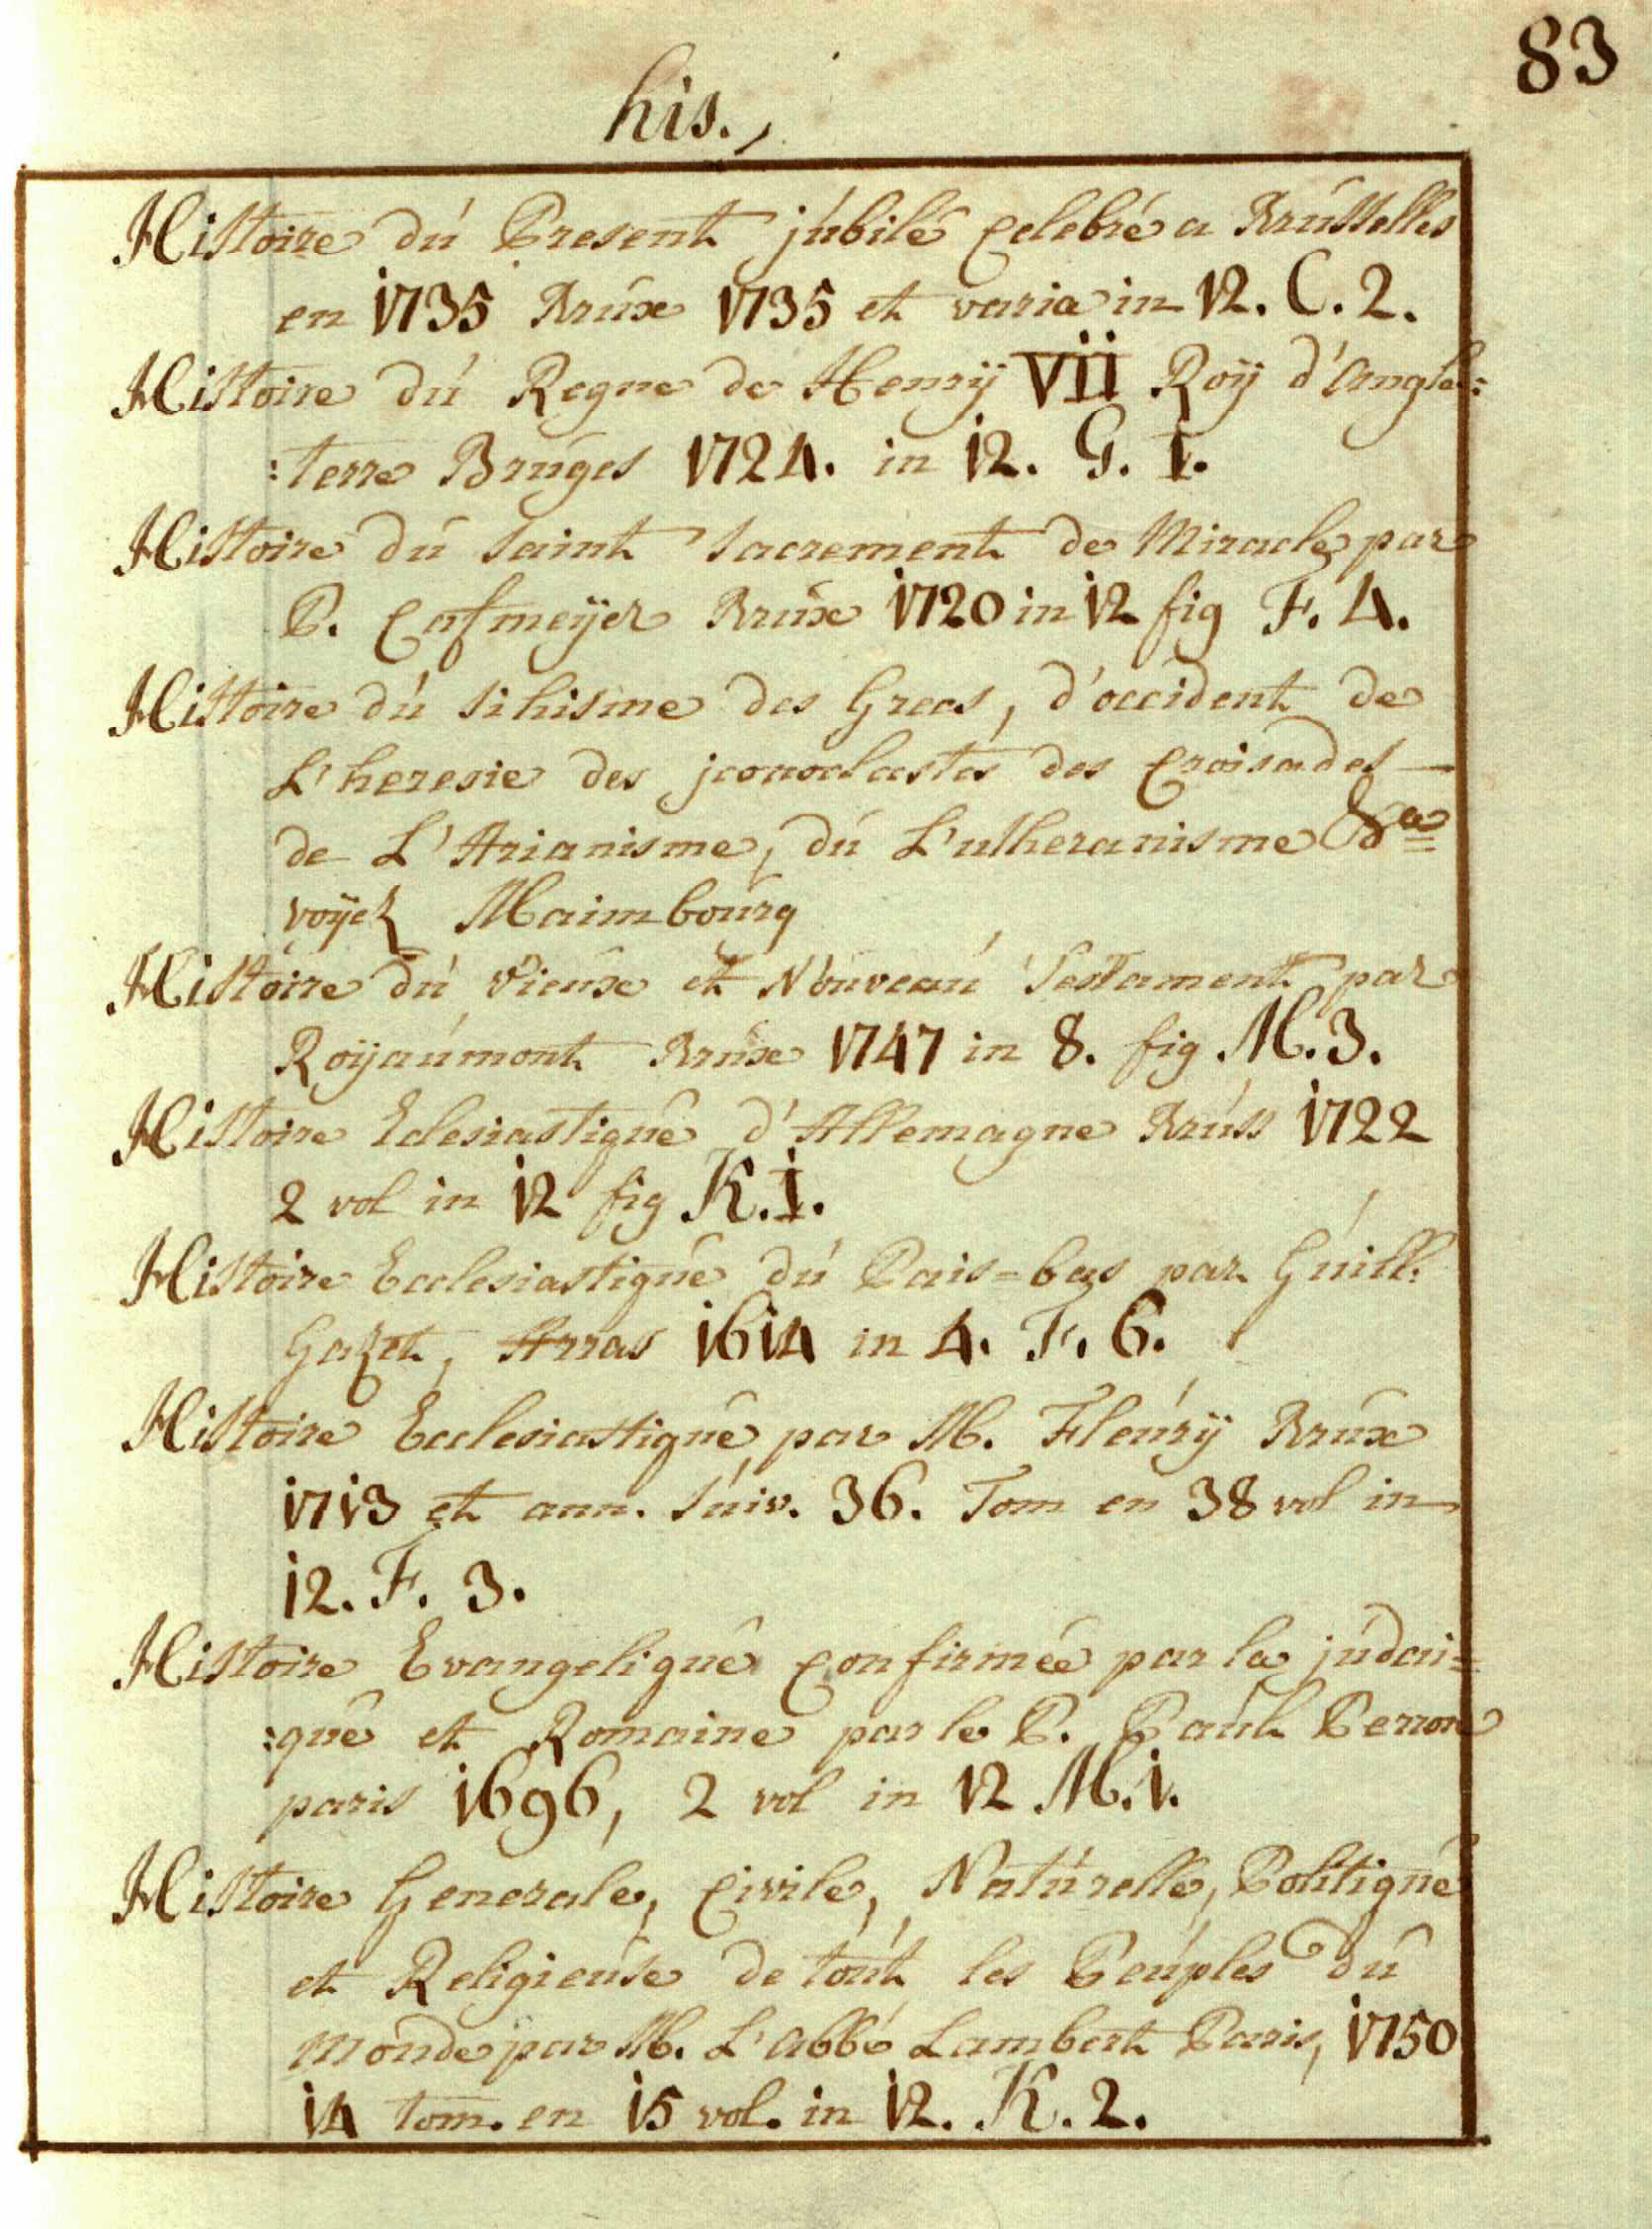 83
his.,
Histoire dú Present júbilé celebré a Brússelles
en 1735 Brúx 1735 et varia in 12. C. 2.
Histoire dú Regne de Henrÿ VII Roÿ d'Angle:
:terre Brúges 1724. in 12. G. I.
Histoire dú saint sacrement de Miracle par
P. Cafmeÿer Brúx 1720 in 12 fig F. 4.
Histoire dú sihisme des Grecs, d'occident de
L'heresie des jconoclastes des Croisades —
de L'Arianisme, dú L'utheranisme &a
voÿez Maimboúrg
Histoire dú vieúx et Noúveaú Testament par
Roÿaúmont Brúx 1747 in 8. fig M. 3.
Histoire Eclesiastiqúe d'Allemagne Brúss 1722
2 vol in 12 fig K. I.
Histoire Ecclesiastiqúe dú Pais=bas par Gúill:
Gazet, Arras 1614 in 4. F. 6.
Histoire Ecclesiastiqúe par M. Fleúrÿ Brúx
1713 et ann. súiv. 36. Tom en 38 vol in
12. F. 3.
Histoire Evangeliqúe confirmée par la júdai=
:qúe et Romaine par le P. Paúl Perron
paris 1696, 2 vol in 12 M. 1.
Histoire Generale, Civile, Natúrelle, Politiqúe
et Religieúse de toút les Peúples dú
monde par M. L'abbé Lambert Paris, 1750
14 tom. en 15 vol. in 12. K. 2.